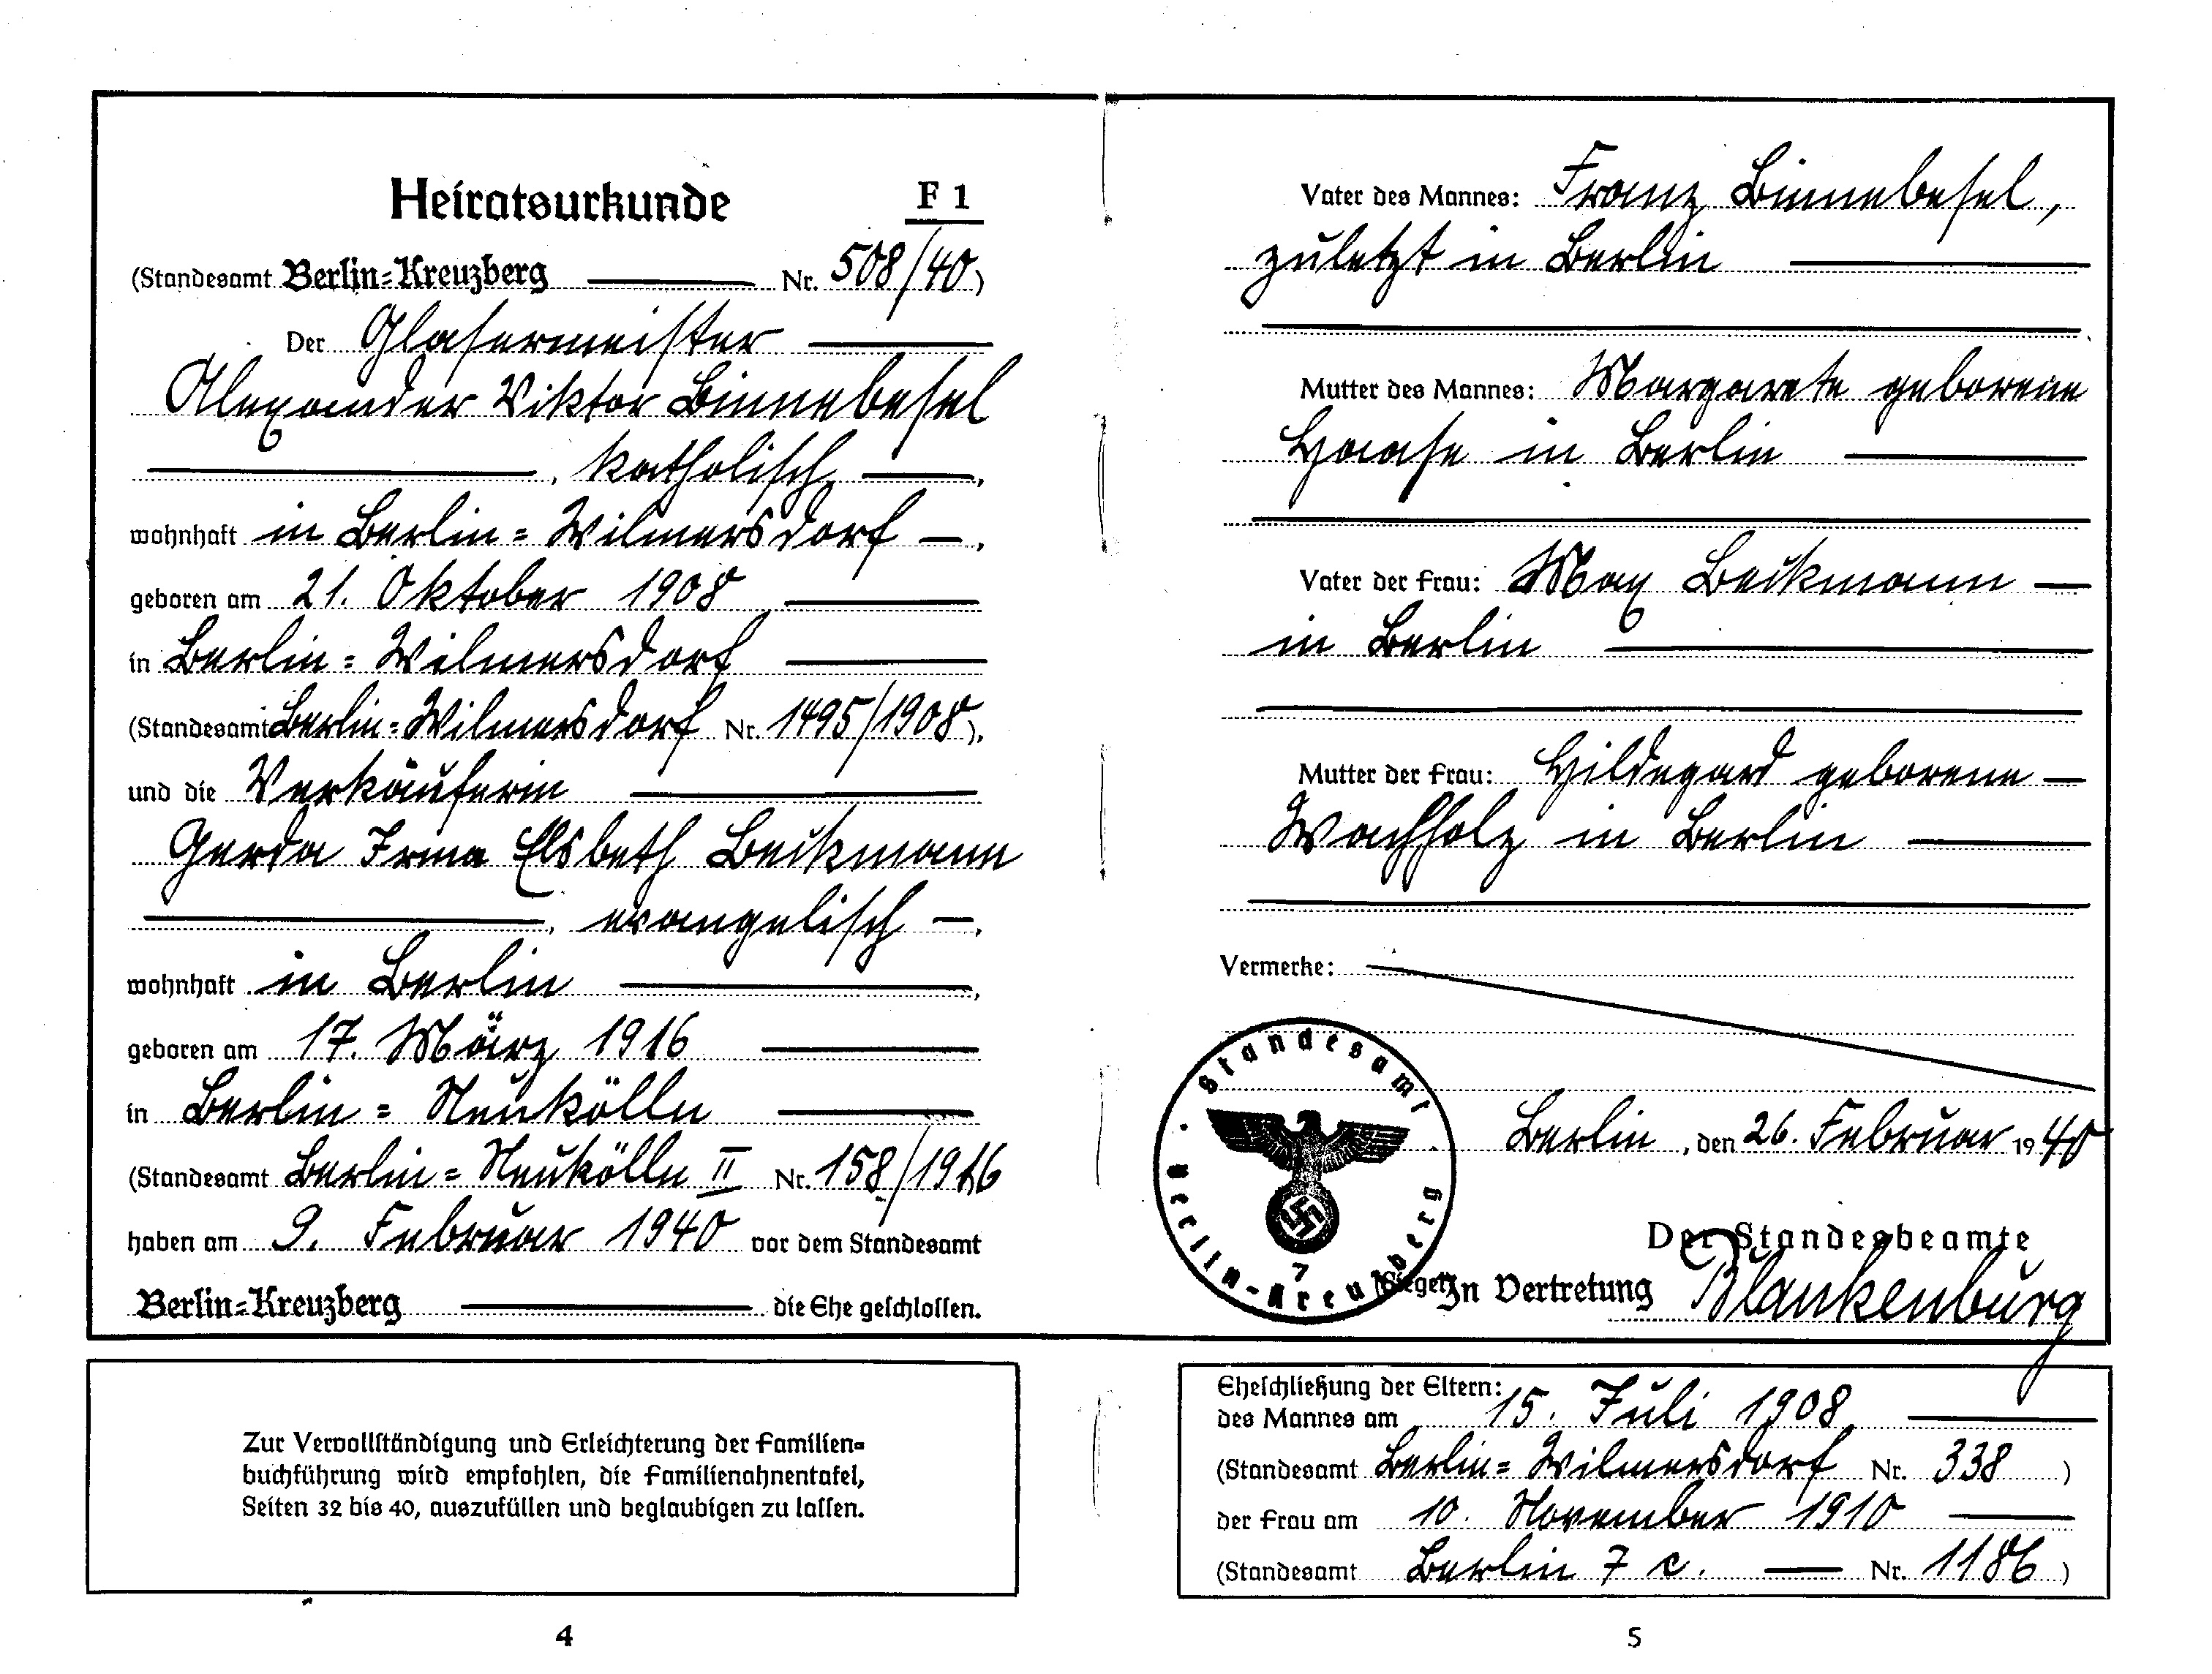 Heiratsurkunde F 1
(Standesamt Berlin=Kreuzberg Nr. 508/40)
Der Glasermeister
Alexander Viktor Binnebesel
, katholisch,
wohnhaft in Berlin=Wilmersdorf –,
geboren am 21. Oktober 1908
in Berlin=Wilmersdorf
(Standesamt Berlin=Wilmersdorf Nr. 1495/1908),
und die Verkäuferin
Gerda Irma Elsbeth Beickmann
, evangelisch –,
wohnhaft in Berlin,
geboren am 17. März 1916
in Berlin=Neukölln
(Standesamt Berlin=Neukölln II Nr. 158/1916
haben am 9. Februar 1940 vor dem Standesamt
Berlin=Kreuzberg die Ehe geschlossen.
Zur Vervollständigung und Erleichterung der Familien=
buchführung wird empfohlen, die Familienahnentafel,
Seiten 32 bis 40, auszufüllen und beglaubigen zu lassen.
4
Vater des Mannes: Franz Binnebesel,
zuletzt in Berlin
Mutter des Mannes: Margarete geborene
Haase in Berlin
Vater der Frau: Max Beickmann –
in Berlin
Mutter der Frau: Hildegard geborene –
Wachholz in Berlin
Vermerke:
Standesamt
Berlin-Kreuzberg
7
Berlin, den 26. Februar 1940
Der Standesbeamte
(Siegel) In Vertretung Blankenburg
Eheschließung der Eltern:
des Mannes am 15. Juli 1908
(Standesamt Berlin=Wilmersdorf Nr. 338)
der Frau am 10. November 1910
(Standesamt Berlin 7 c. — Nr. 1186)
5